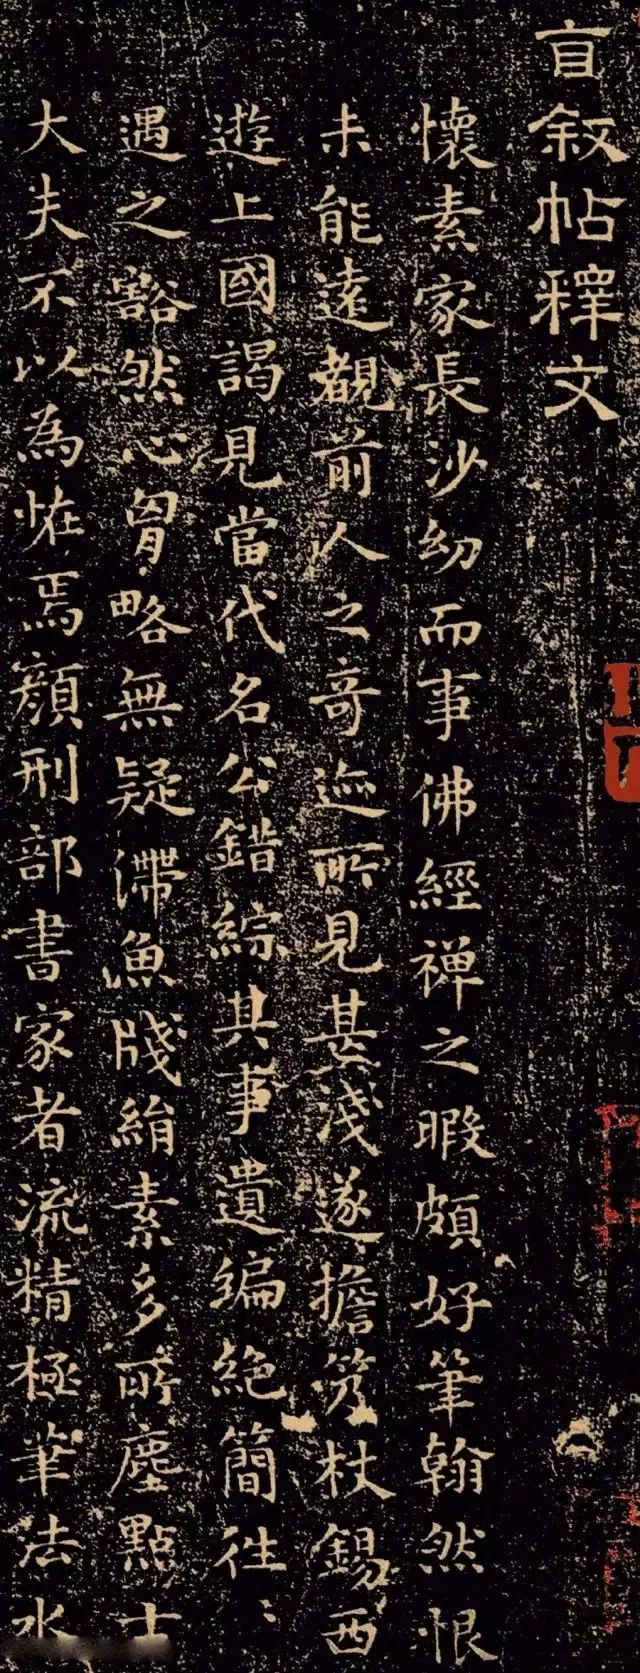 自叙帖釋文
懷素家長沙幼而事佛經禅之暇頗好筆翰然恨
未能遠覩前人之奇迹所見甚淺遂擔笈杖錫西
遊上國謁見當代名公錯綜其事遺編絶簡往〻
遇之豁然心胷略無疑滯魚牋絹素多所塵點士
大夫不以為恠焉顔刑部書家者流精極筆法水